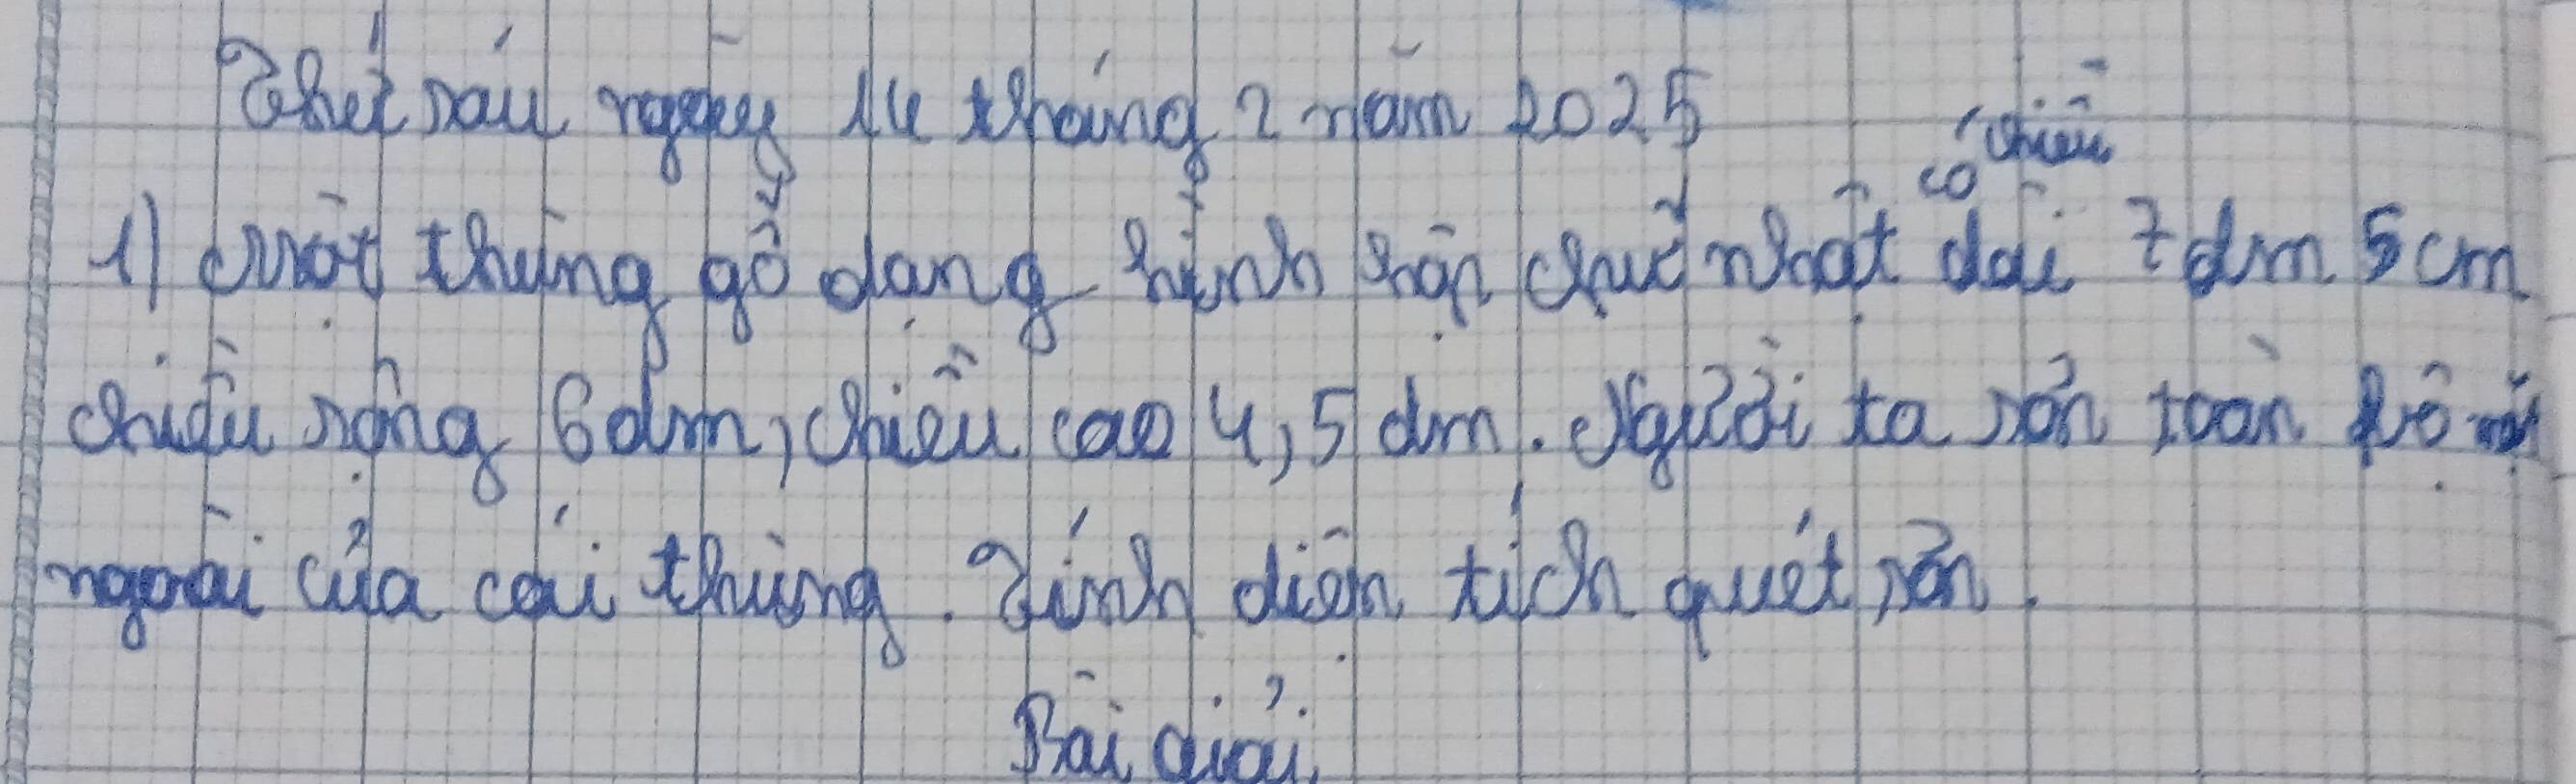 Thứ sáu ngày 14 tháng 2 năm 2025
1) Một thùng gỗ dạng hình hộp chữ nhật có chiều dài 7dm 5cm
chiều rộng 6dm, chiều cao 4,5 dm. Người ta sơn toàn bộ mặt
ngoài của cái thùng. Tính diện tích quét sơn.
Bài giải